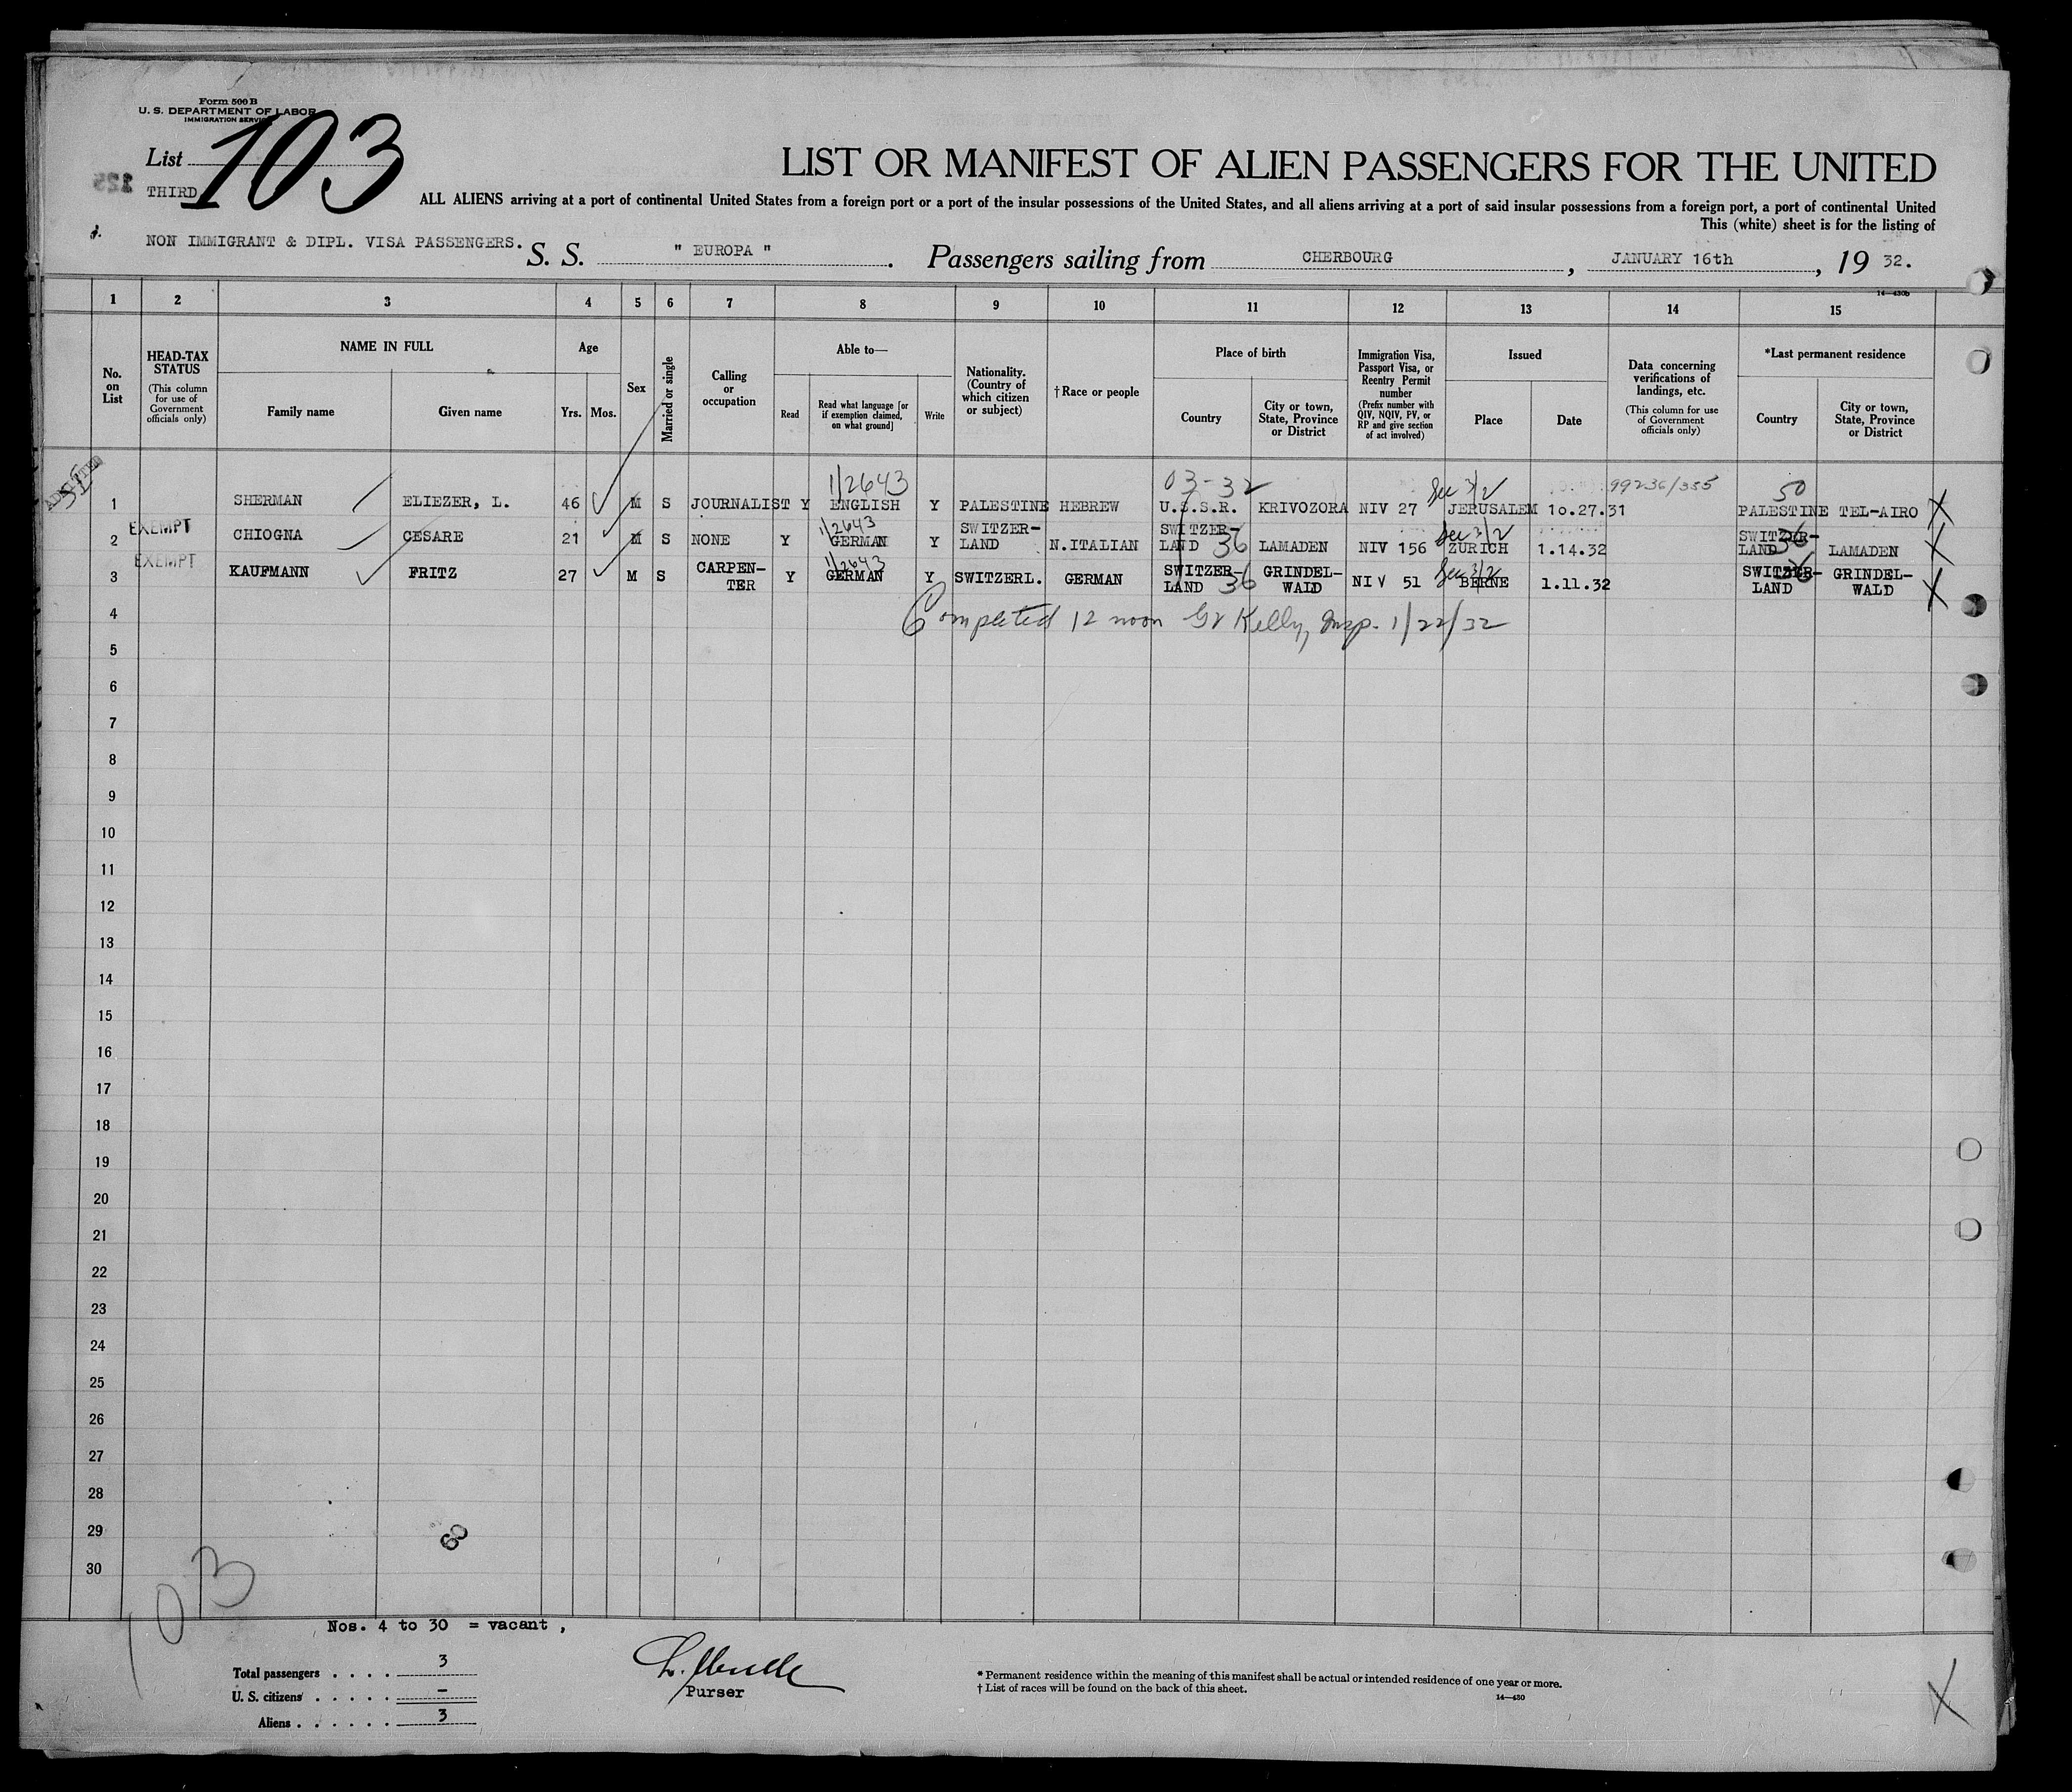 Form 500 B
U. S. DEPARTMENT OF LABOR
IMMIGRATION SERVICE
List 103
THIRD
125
LIST OR MANIFEST OF ALIEN PASSENGERS FOR THE UNITED
ALL ALIENS arriving at a port of continental United States from a foreign port or a port of the insular possessions of the United States, and all aliens arriving at a port of said insular possessions from a foreign port, a port of continental United
This (white) sheet is for the listing of
NON IMMIGRANT & DIPL. VISA PASSENGERS. S. S. " EUROPA ". Passengers sailing from CHERBOURG, JANUARY 16th, 19 32.
14—430b
1 2 3 4 5 6 7 8 9 10 11 12 13 14 15
No. on List
HEAD-TAX STATUS
(This column for use of Government officials only)
NAME IN FULL
Family name
Given name
Age
Yrs.
Mos.
Sex
Married or single
Calling or occupation
Able to—
Read
Read what language [or if exemption claimed, on what ground]
Write
Nationality. (Country of which citizen or subject)
†Race or people
Place of birth
Country
City or town, State, Province or District
Immigration Visa, Passport Visa, or Reentry Permit number
(Prefix number with QIV, NQIV, PV, or RP and give section of act involved)
Issued
Place
Date
Data concerning verifications of landings, etc.
(This column for use of Government officials only)
*Last permanent residence
Country
City or town, State, Province or District
ADMITTED
1/2643 03-32 Sec 3/2 99236/355 50
1 SHERMAN ELIEZER, L. 46 M S JOURNALIST Y ENGLISH Y PALESTINE HEBREW U.S.S.R. KRIVOZORA NIV 27 JERUSALEM 10.27.31 PALESTINE TEL-AIRO X
EXEMPT 1/2643 Sec 3/2
2 CHIOGNA CESARE 21 M S NONE Y GERMAN Y SWITZER-LAND N.ITALIAN SWITZER-LAND 36 LAMADEN NIV 156 ZURICH 1.14.32 SWITZER-LAND 36 LAMADEN X
EXEMPT 1/2643 Sec 3/2
3 KAUFMANN FRITZ 27 M S CARPEN-TER Y GERMAN Y SWITZERL. GERMAN SWITZER-LAND 36 GRINDEL-WALD NIV 51 BERNE 1.11.32 SWITZER-LAND 36 GRINDEL-WALD X
4 Completed 12 noon Kelly, Insp. 1/22/32
5
6
7
8
9
10
11
12
13
14
15
16
17
18
19
20
21
22
23
24
25
26
27
28
29
30
103
Nos. 4 to 30 = vacant,
Total passengers . . . . 3
U. S. citizens . . . . . –
Aliens . . . . . . 3
Purser
* Permanent residence within the meaning of this manifest shall be actual or intended residence of one year or more.
† List of races will be found on the back of this sheet.
14—430
X